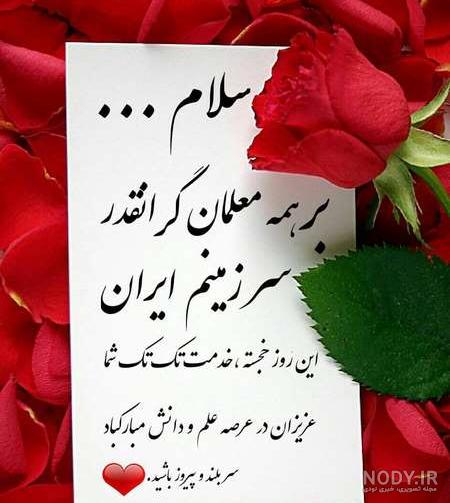 سلام ...
بر همه معلمان گرانقدر
سرزمینم ایران
این روز خجسته ، خدمت تک تک شما
عزیزان در عرصه علم و دانش مبارکباد
سربلند و پیروز باشید.
NODY.IR
مجله تصویری، خبری نودی